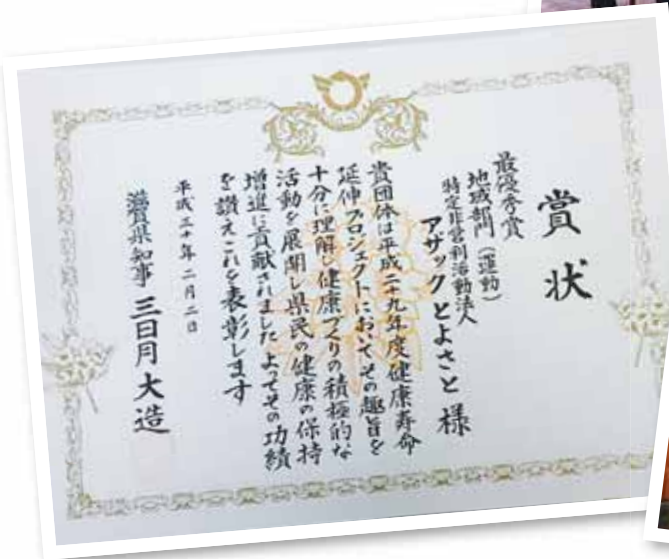 賞状
最優秀賞
地域部門（運動）
特定非営利活動法人
アザックとよさと様
貴団体は平成二十九年度健康寿命
延伸プロジェクトにおいてその趣旨を
十分に理解し健康づくりの積極的な
活動を展開し県民の健康の保持
増進に貢献されましたよってその功績
を讃えこれを表彰します
平成三十年二月二日
滋賀県知事 三日月大造